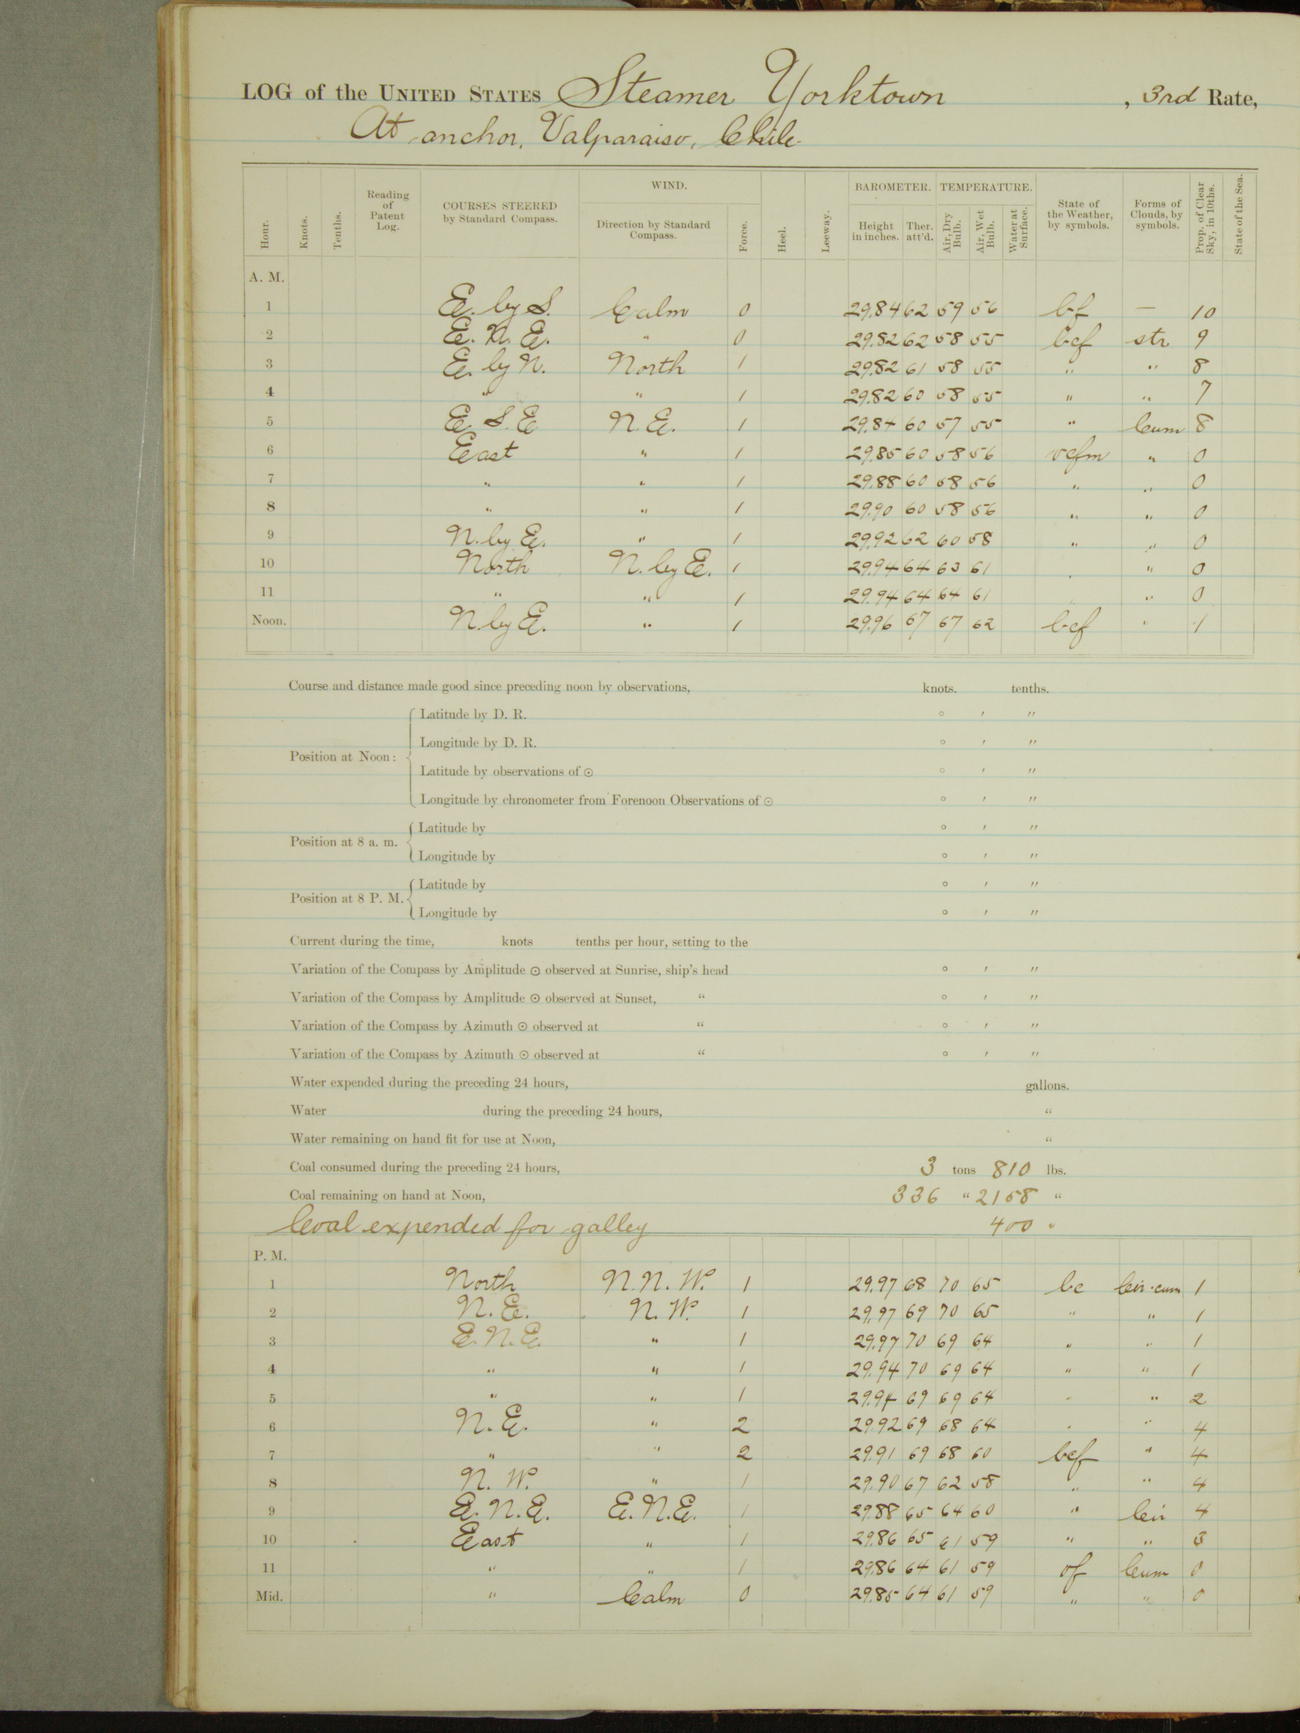 LOG of the UNITED STATES Steamer Yorktown, 3rd Rate,
At anchor, Valparaiso, Chile.
Hour. Knots. Tenths. Reading of Patent Log. COURSES STEERED by Standard Compass. WIND. Direction by Standard Compass. Force. Heel. Leeway. BAROMETER. Height in inches. Ther. att'd. TEMPERATURE. Air, Dry Bulb. Air, Wet Bulb. Water at Surface. State of the Weather, by symbols. Forms of Clouds, by symbols. Prop. of Clear Sky, in 10ths. State of the Sea.
A. M.
1 E. by S. Calm 0 29.84 62 59 56 bf — 10
2 E. N. E. " 0 29.82 62 58 55 bcf str 9
3 E. by N. North 1 29.82 61 58 55 " " 8
4 " " 1 29.82 60 58 55 " " 7
5 E. S. E. N. E. 1 29.84 60 57 55 " Cum 8
6 East " 1 29.85 60 58 56 ocfm " 0
7 " " 1 29.88 60 58 56 " " 0
8 " " 1 29.90 60 58 56 " " 0
9 N. by E. " 1 29.92 62 60 58 " " 0
10 North N. by E. 1 29.94 64 63 61 " " 0
11 " " 1 29.94 64 64 61 " 0
Noon. N by E. " 1 29.96 67 67 62 bcf " 1
Course and distance made good since preceding noon by observations, knots. tenths.
Position at Noon: Latitude by D. R. ° ′ ″
Longitude by D. R. ° ′ ″
Latitude by observations of ⊙ ° ′ ″
Longitude by chronometer from Forenoon Observations of ⊙ ° ′ ″
Position at 8 a. m. Latitude by ° ′ ″
Longitude by ° ′ ″
Position at 8 P. M. Latitude by ° ′ ″
Longitude by ° ′ ″
Current during the time, knots tenths per hour, setting to the
Variation of the Compass by Amplitude ⊙ observed at Sunrise, ship's head ° ′ ″
Variation of the Compass by Amplitude ⊙ observed at Sunset, " ° ′ ″
Variation of the Compass by Azimuth ⊙ observed at " ° ′ ″
Variation of the Compass by Azimuth ⊙ observed at " ° ′ ″
Water expended during the preceding 24 hours, gallons.
Water during the preceding 24 hours, "
Water remaining on hand fit for use at Noon, "
Coal consumed during the preceding 24 hours, 3 tons 810 lbs.
Coal remaining on hand at Noon, 336 " 2158 "
Coal expended for galley 400 "
P. M.
1 North N. N. W. 1 29.97 68 70 65 bc Cir-cum 1
2 N. E. N. W. 1 29.97 69 70 65 " " 1
3 E. N. E. " 1 29.97 70 69 64 " " 1
4 " " 1 29.94 70 69 64 " " 1
5 " " 1 29.94 69 69 64 " " 2
6 N. E. " 2 29.92 69 68 64 " " 4
7 " " 2 29.91 69 68 60 bcf " 4
8 N. W. " 1 29.90 67 62 58 " " 4
9 E. N. E. E. N. E. 1 29.88 65 64 60 " Cir 4
10 East " 1 29.86 65 61 59 " " 3
11 " " 1 29.86 64 61 59 of Cum 0
Mid. " Calm 0 29.85 64 61 59 " " 0